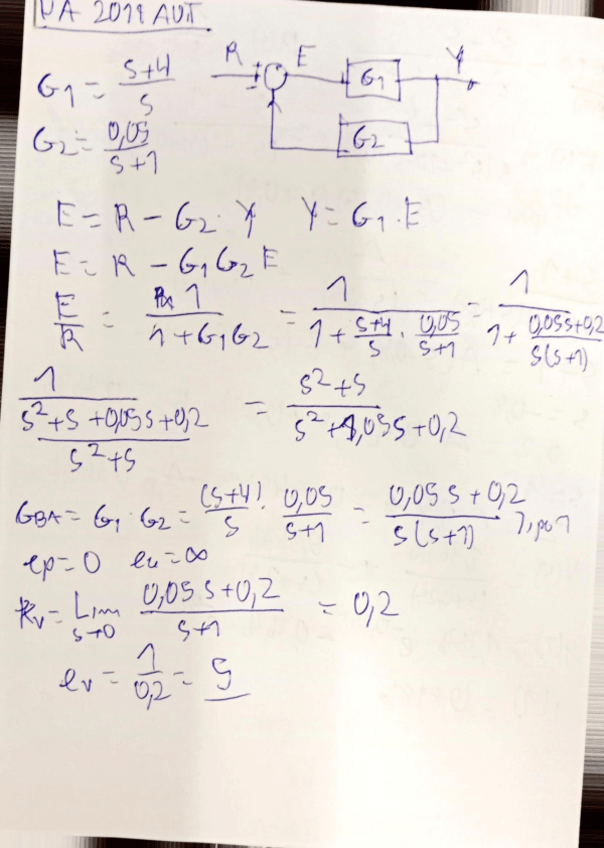 NA 2011 AUT
G1 = (s+4)/s
R ± E G1 Y
G2 = 0,05/(s+1)
G2
E = R - G2·Y Y = G1·E
E = R - G1G2E
E/R = 1/(1+G1G2) = 1/(1 + (s+4)/s · 0,05/(s+1)) = 1/(1 + (0,05s+0,2)/(s(s+1)))
1/((s²+s+0,05s+0,2)/(s²+s)) = (s²+s)/(s²+1,05s+0,2)
GBA = G1·G2 = (s+4)/s · 0,05/(s+1) = (0,05s+0,2)/(s(s+1))
ep=0 ea=∞
Kv = Lim s→0 (0,05s+0,2)/(s+1) = 0,2
ev = 1/0,2 = 5